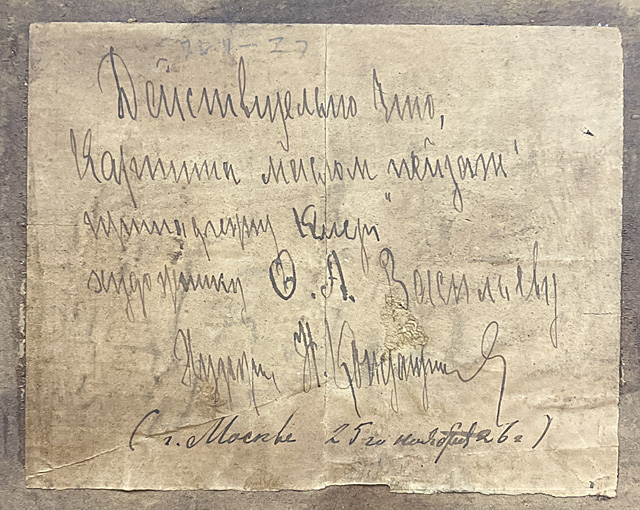 Действительно Это,
Картина маслом "пейзаж"
принадлежит
художнику Ф. А. Васильеву
Н.
(г. Москве 25го ноября 26г)